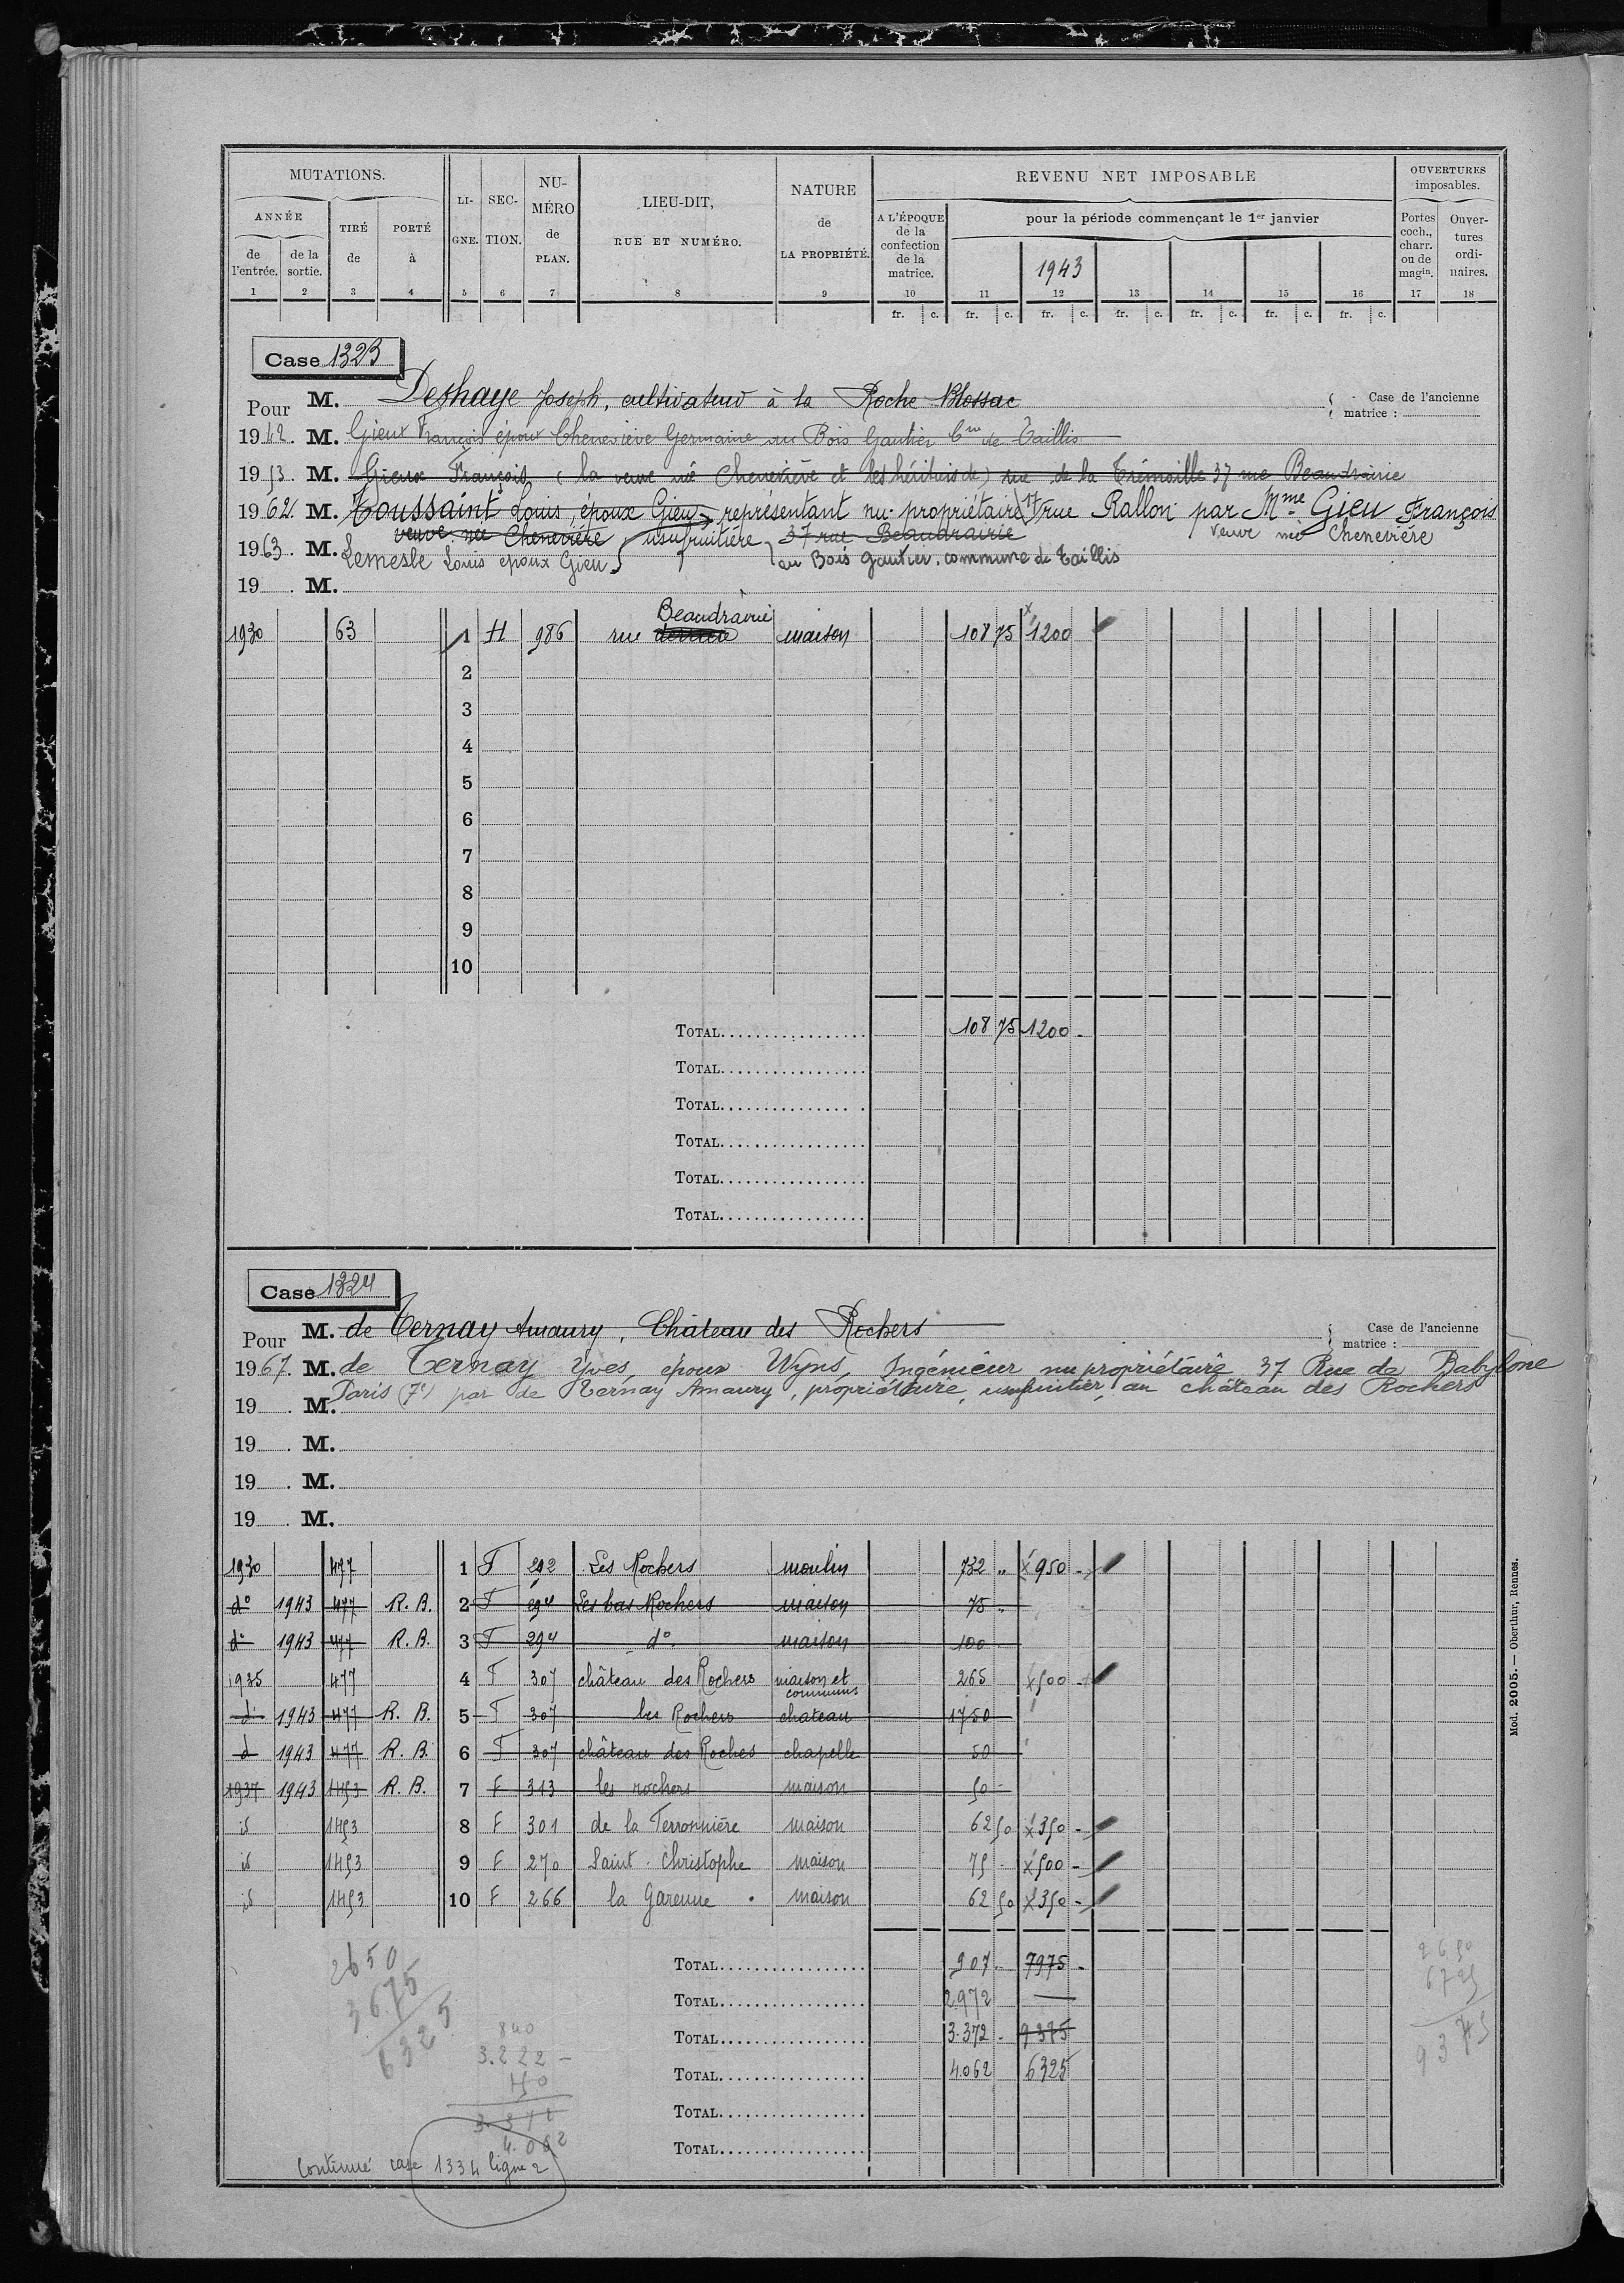 MUTATIONS.
ANNÉE
de l'entrée.
de la sortie.
TIRÉ de
PORTÉ à
LI-GNE.
SEC-TION.
NU-MÉRO de PLAN.
LIEU-DIT,
RUE ET NUMÉRO.
NATURE de LA PROPRIÉTÉ.
REVENU NET IMPOSABLE
A L'ÉPOQUE de la confection de la matrice.
pour la période commençant le 1er janvier
1943
OUVERTURES imposables.
Portes coch., charr. ou de magin.
Ouver-tures ordi-naires.
1 2 3 4 5 6 7 8 9 10 11 12 13 14 15 16 17 18
fr. c. fr. c. fr. c. fr. c. fr. c. fr. c. fr. c.
Case 1323
Pour M. Deshaye Joseph, cultivateur à la Roche Blossac
Case de l'ancienne matrice :
1942. M. Gieux François époux Chenevière Germaine au Bois Gautier Cne de Taillis
1953. M. Gieux François (la veuve née Chenevière et les héritiers de) rue de la Trémoille 37 rue Beaudrairie
1962. M. Toussaint Louis, époux Gieu, représentant nu-propriétaire 17 rue Rallon par Mme Gieu François
veuve née Chenevière usufruitière 37 rue Beaudrairie veuve née Chenevière
1963. M. Lemesle Louis époux Gieu au Bois Gautier. commune de Taillis
19 . M.
Beaudrairie
1930 63 1 H 986 rue derrière maison 108 75 x 1200
2
3
4
5
6
7
8
9
10
TOTAL 108 75 1200 -
TOTAL
TOTAL
TOTAL
TOTAL
TOTAL
Case 1324
Pour M. de Ternay Amaury, Château des Rochers
Case de l'ancienne matrice :
1967. M. de Ternay Yves, époux Wyns, Ingénieur nu propriétaire 37 Rue de Babylone
Paris (7e) par de Ternay Amaury, propriétaire, usufruitier, au château des Rochers
19 . M.
19 . M.
19 . M.
19 . M.
1930 477 1 F 292 Les Rochers moulin 732 " x 950 -
do 1943 477 R. B. 2 F 294 Les bas Rochers maison 75 "
do 1943 477 R. B. 3 F 294 do maison 100
1935 477 4 F 307 château des Rochers maison et communs 265 x 500 -
d 1943 477 R. B. 5 F 307 les Rochers chateau 1750
d 1943 477 R. B. 6 F 307 château des Roches chapelle 50
1937 1943 1453 R. B. 7 F 313 les rochers maison 50 -
id 1453 8 F 301 de la Ferronnière maison 62 50 x 350 -
id 1453 9 F 270 Saint-Christophe maison 75 - x 500 -
id 1453 10 F 266 la Garenne maison 62 50 x 350 -
TOTAL 907 - 7975 -
TOTAL 2.972
TOTAL 3.372 - 9375
TOTAL 4.062 6325
TOTAL
TOTAL
2650
3675
6325
840
3.222 -
150
3.372
4.062
2650
6725
9375
Continué case 1334 ligne 2
Mod. 2005. — Oberthur, Rennes.